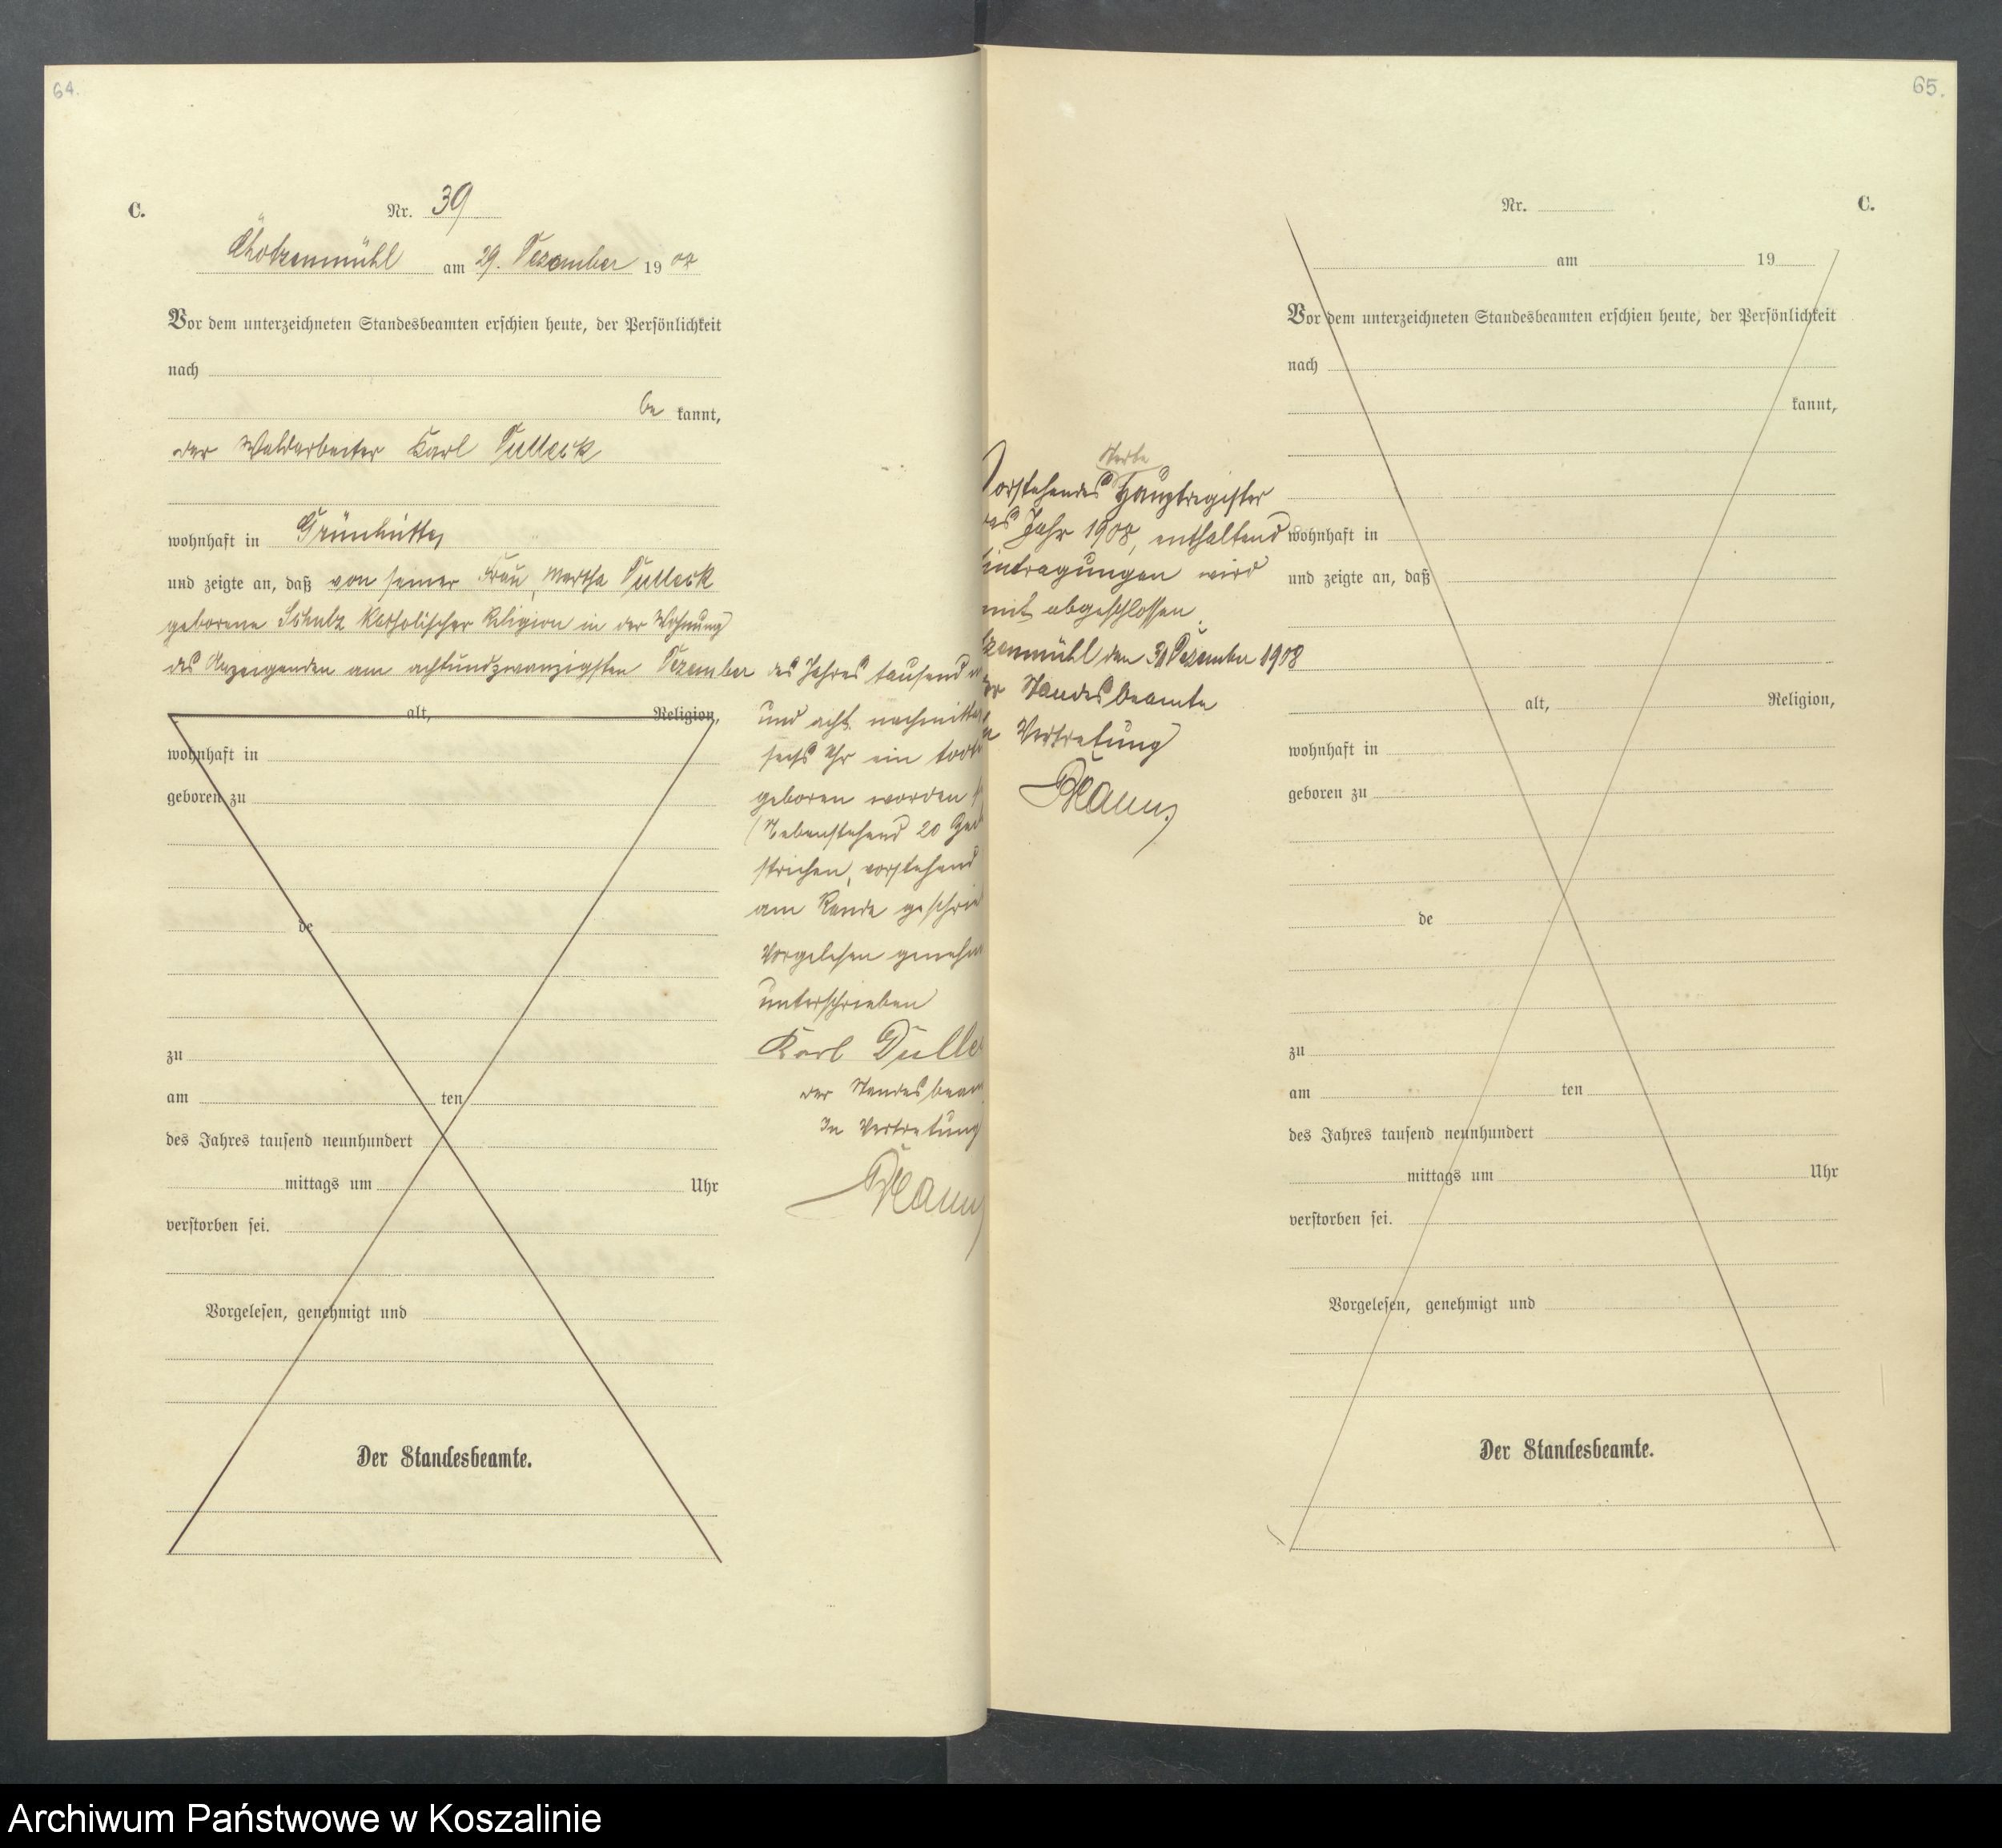 64.
C.
Nr. 39
Chotzenmühl am 29. Dezember 19 08
Vor dem unterzeichneten Standesbeamten erschien heute, der Persönlichkeit
nach
be kannt,
der Waldarbeiter Karl Dulleck
wohnhaft in Grünhütte,
und zeigte an, daß von seiner Frau, Martha Dulleck
geborene Schulz katholischer Religion in der Wohnung
des Anzeigenden am achtundzwanzigsten Dezember des Jahres tausend
und acht nachmitta
sechs Uhr ein
geboren worden
(Nebenstehend 20
strichen, vorstehend
am Rande geschrie
Vorgelesen geneh
unterschrieben
Karl Dulle
der Standesbeam
In Vertretung
alt, Religion,
wohnhaft in
geboren zu
de
zu
am ten
des Jahres tausend neunhundert
mittags um Uhr
verstorben sei.
Vorgelesen, genehmigt und
Der Standesbeamte.
65.
Nr. C.
am 19
Vor dem unterzeichneten Standesbeamten erschien heute, der Persönlichkeit
nach
kannt,
Sterbe
Vorstehendes Hauptregister
Jahr 1908, enthaltend
intragungen wird
mit abgeschlossen.
tzenmühl den 31 Dezember 1908
Standesbeamte
Vertretung
wohnhaft in
und zeigte an, daß
alt, Religion,
wohnhaft in
geboren zu
de
zu
am ten
des Jahres tausend neunhundert
mittags um Uhr
verstorben sei.
Vorgelesen, genehmigt und
Der Standesbeamte.
Archiwum Państwowe w Koszalinie